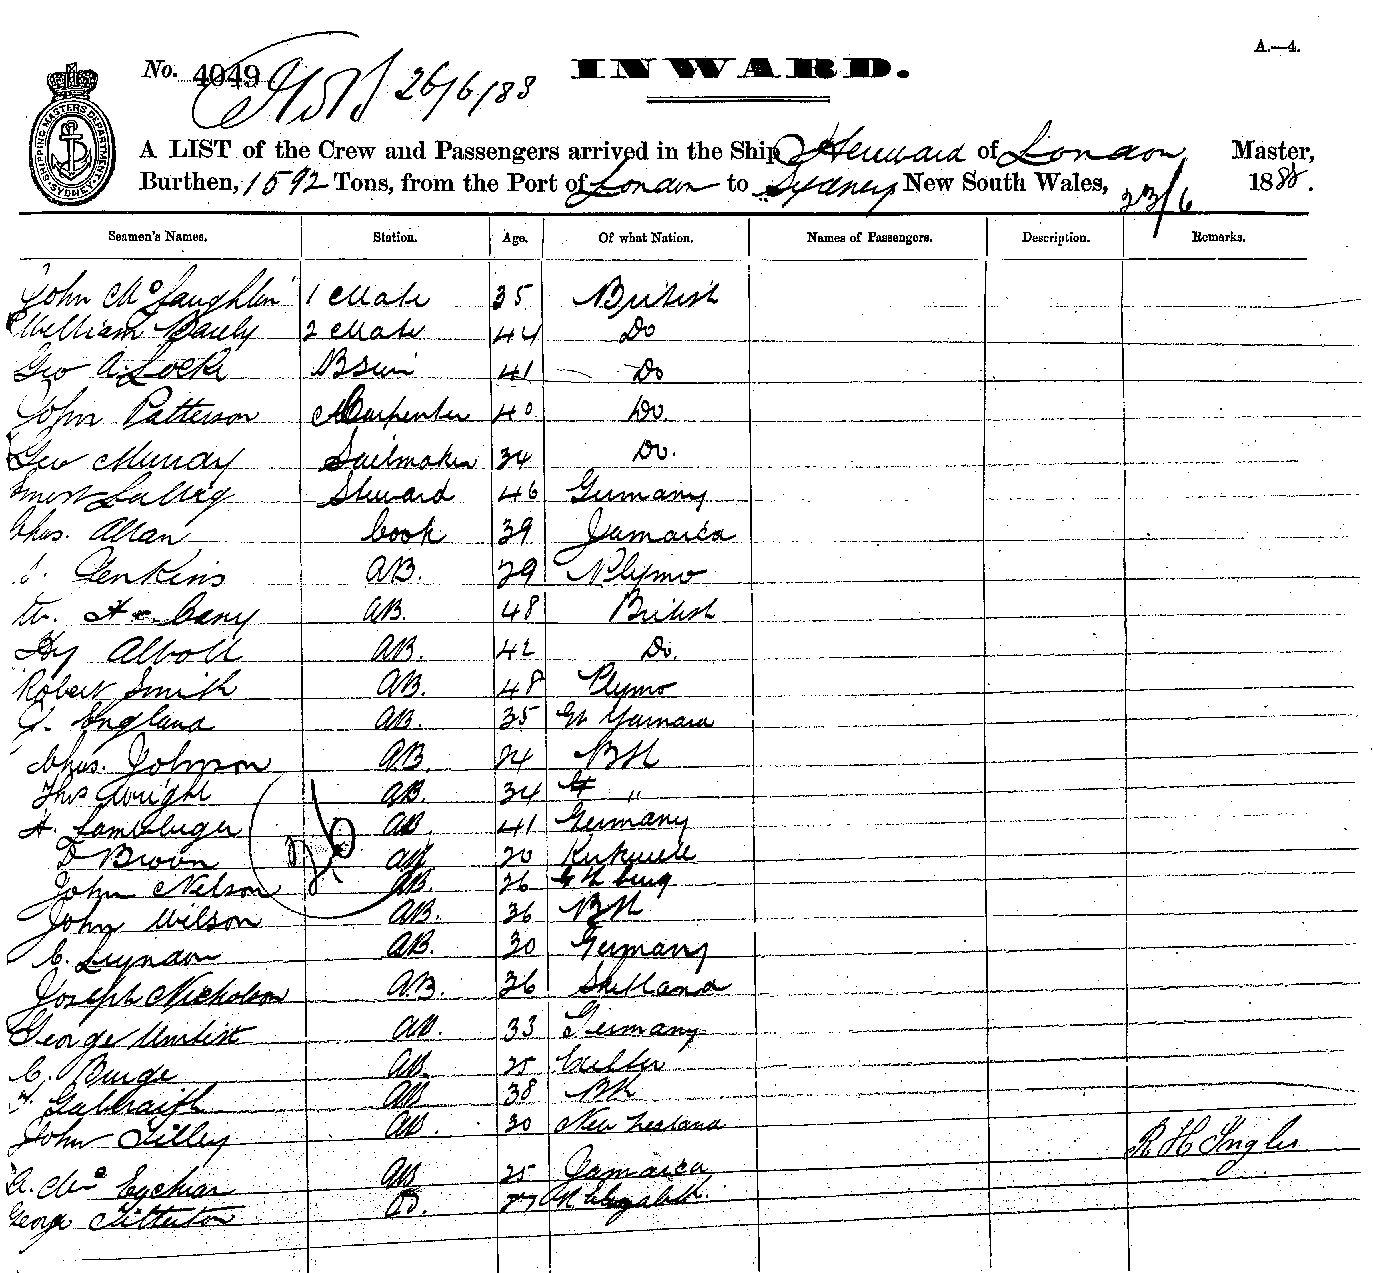 A.—4.
No. 4049 26/6/88 INWARD.
SHIPPING MASTERS DEPARTMENT SYDNEY
A LIST of the Crew and Passengers arrived in the Ship Hereward of London, Master,
Burthen, 1592 Tons, from the Port of London to Sydney New South Wales, 23/6 1888.
Seamen's Names. Station. Age. Of what Nation. Names of Passengers. Description. Remarks.
John McLaughlin 1 Mate 35 British
William 2 Mate 44 Do
Geo A. Locke Bswn 41 Do
John Patterson Carpenter 40 Do.
Geo Munday Sailmaker 34 Do.
Ernest Steward 46 Germany
Chas. Allan Cook 39 Jamaica
Jenkins AB. 29 Plymo
AB. 48 British
Hy Abbott AB. 42 Do.
Robert Smith AB. 48 Plymo
England AB. 35 Gt
Chas. Johnson AB. 24
Thos Wright AB. 34 "
H. AB. 41 Germany
D Brown AB 20 Kirkwell
John Nelson AB 26
John Wilson AB. 36
C. AB. 30 Germany
Joseph Nicholson A.B. 36 Shetland
George AB. 33 Germany
C. Burge AB. 25
Galbraith AB 38
John Tilley AB. 30 New Zealand
R H Ingles
A. Mc AB 25 Jamaica
George Titterton O.